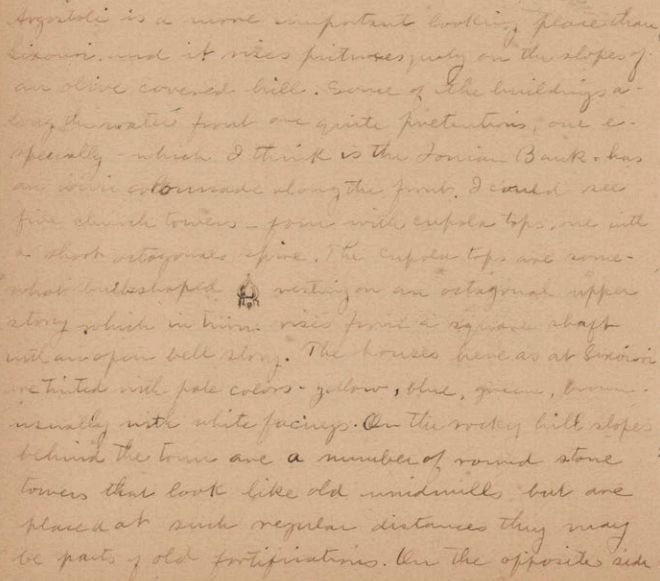 Argostoli is a more important looking place than
Lixouri. and it rises picturesquely on the slopes of
an olive covered hill. Some of the buildings a-
long the water front are quite pretentious, one e-
specially - which I think is the Ionian Bank - has
an colonnade along the front. I could see
five church towers - four with cupola tops, one with
a short octagonal spire. The cupola tops are some-
what bulbshaped resting on an octagonal upper
story which in turn rises from a square shaft
with an open bell story. The houses here as at Lixouri
are tinted with pale colors - yellow, blue, green, brown
usually with white facings. On the rocky hill slopes
behind the town are a number of round stone
towers that look like old windmills but are
placed at such regular distances they may
be parts of old fortifications. On the opposite side